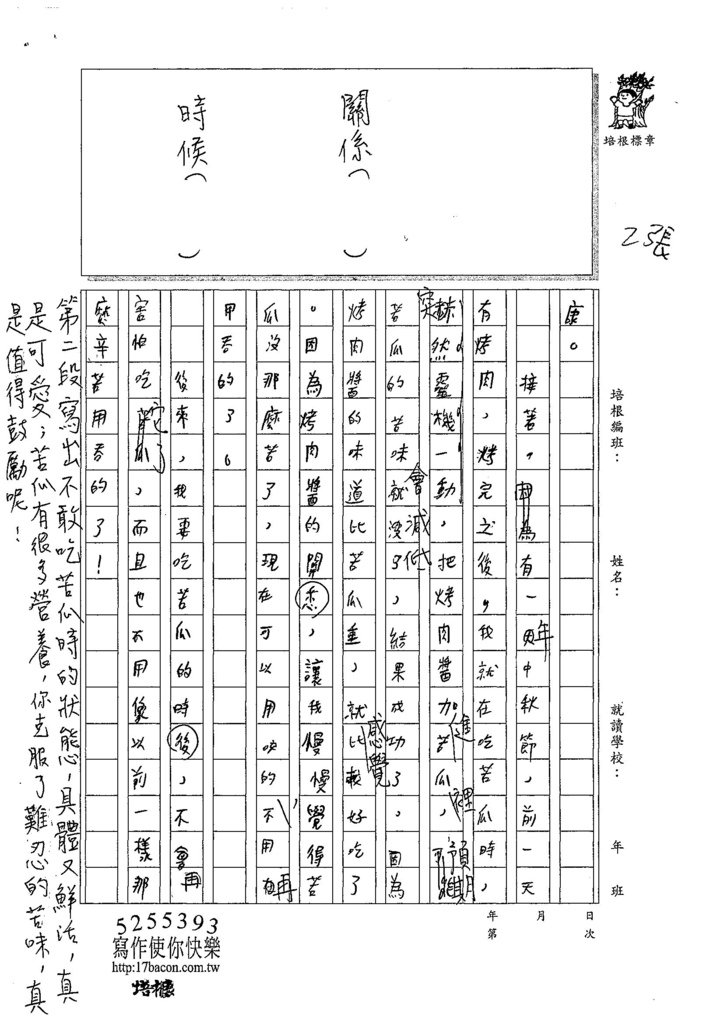 培根標章
2張
關係（　　）
時候（　　）
培根編班：　姓名：　就讀學校：　年　班
康。
接著，因為有一年中秋節，前一天
有烤肉，烤完之後，我就在吃苦瓜時，
突然靈機一動，把烤肉醬加進苦瓜裡，預期
苦瓜的苦味就會減低了，結果成功了，因為
烤肉醬的味道比苦瓜重，就感覺比較好吃了
。因為烤肉醬的關悉，讓我慢慢覺得苦
瓜沒那麼苦了，現在可以用吹的，不用再
甲吞的了。
後來，我要吃苦瓜的時後，不會再
害怕吃它了，而且也不用像以前一樣那
麼辛苦用吞的了！
第二段寫出不敢吃苦瓜時的狀態，具體又鮮活，真
是可愛；苦瓜有很多營養，你克服了難忍的苦味，真
是值得鼓勵呢！
年　月　日
第　次
5255393
寫作使你快樂
http:17bacon.com.tw
培根